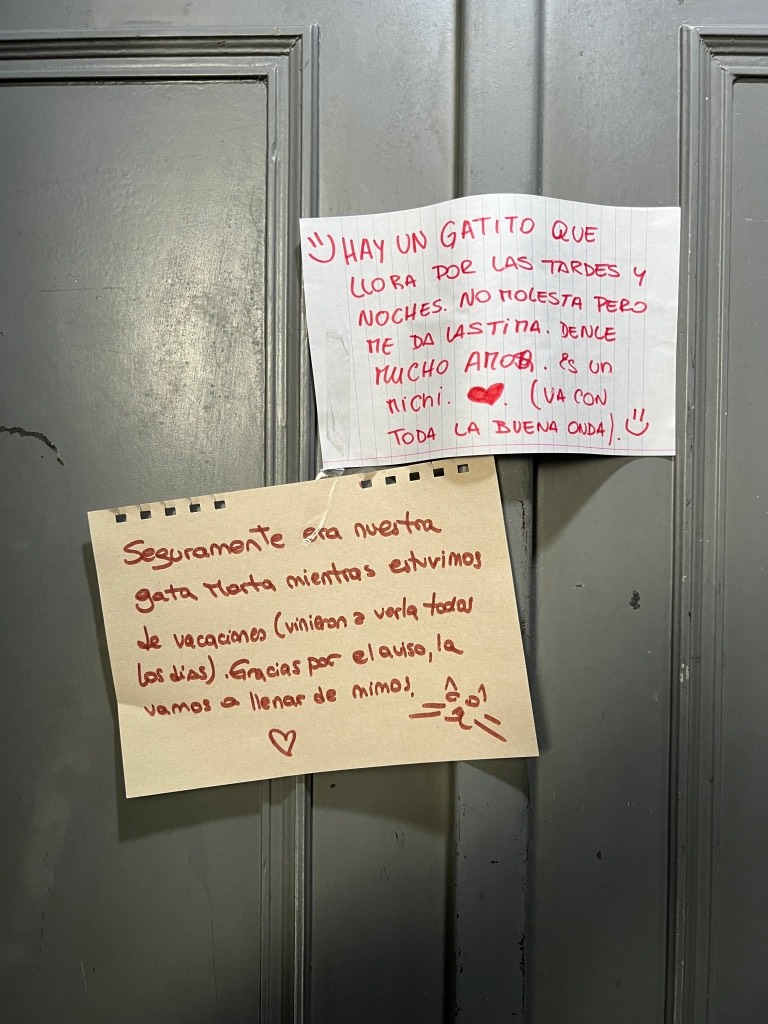 HAY UN GATITO QUE
LLORA POR LAS TARDES Y
NOCHES. NO MOLESTA PERO
ME DA LASTIMA. DENLE
MUCHO AMOR. ES UN
MICHI. ❤. (VA CON
TODA LA BUENA ONDA).
Seguramente era nuestra
gata Marta mientras estuvimos
de vacaciones (vinieron a verla todos
los días). Gracias por el aviso, la
vamos a llenar de mimos.
♡